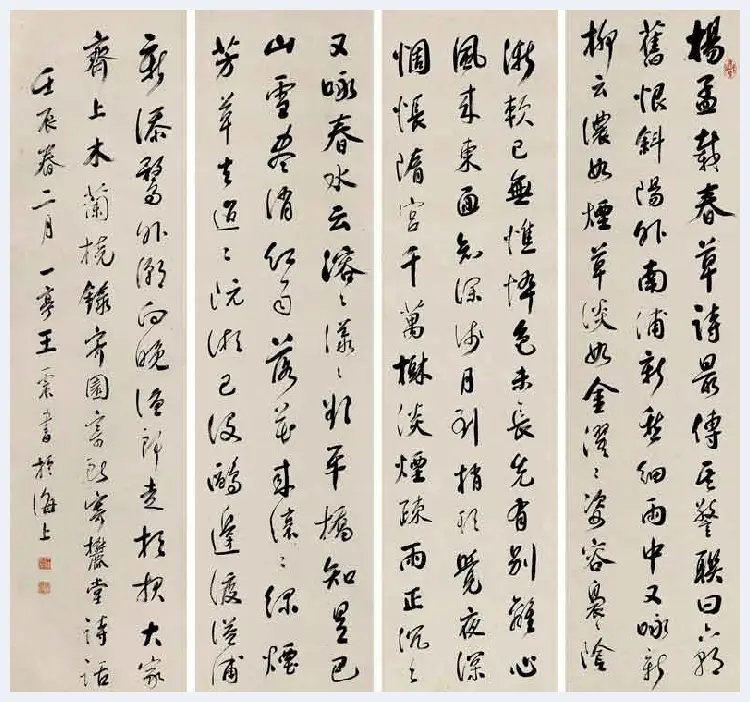 楊孟載春草詩最傳其警聯曰六朝
舊恨斜陽外南浦新愁細雨中又咏新
柳云濃如煙草淡如金濯濯姿容裊裊陰
漸軟已無憔悴色未長先有別離心
風來東面知深淺月到梢頭覺夜深
惆悵隋宮千萬樹淡煙疎雨正沉沉
又咏春水云溶溶漾漾平橋知是巴
山雪盡消紅雨落花來遠遠綠煙
芳草去迢迢沅湘已没鷗邊渡浦
新添鷺外潮向晚漁郎走相報大家
齊上木蘭橈錄寄園寄所寄麓堂詩話
壬辰春二月一亭王震書於海上